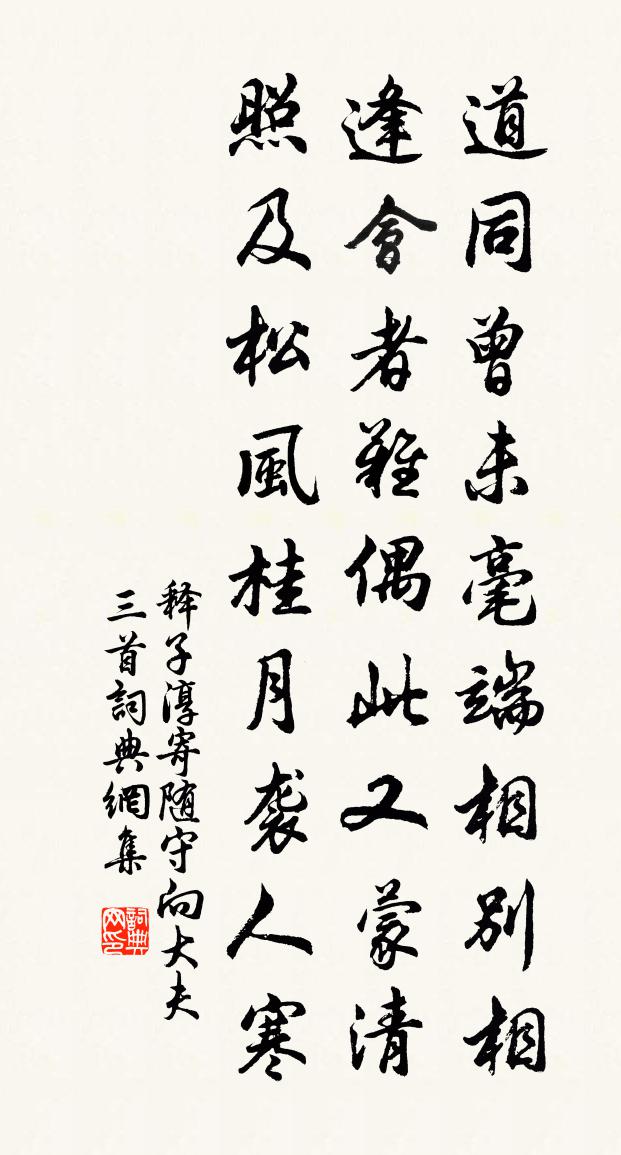 道同曾未毫端相別相
逢會者難偶此又蒙清
照及松風桂月袭人寒
释子淳寄随守向大夫
三首詞典網集
詞典网印